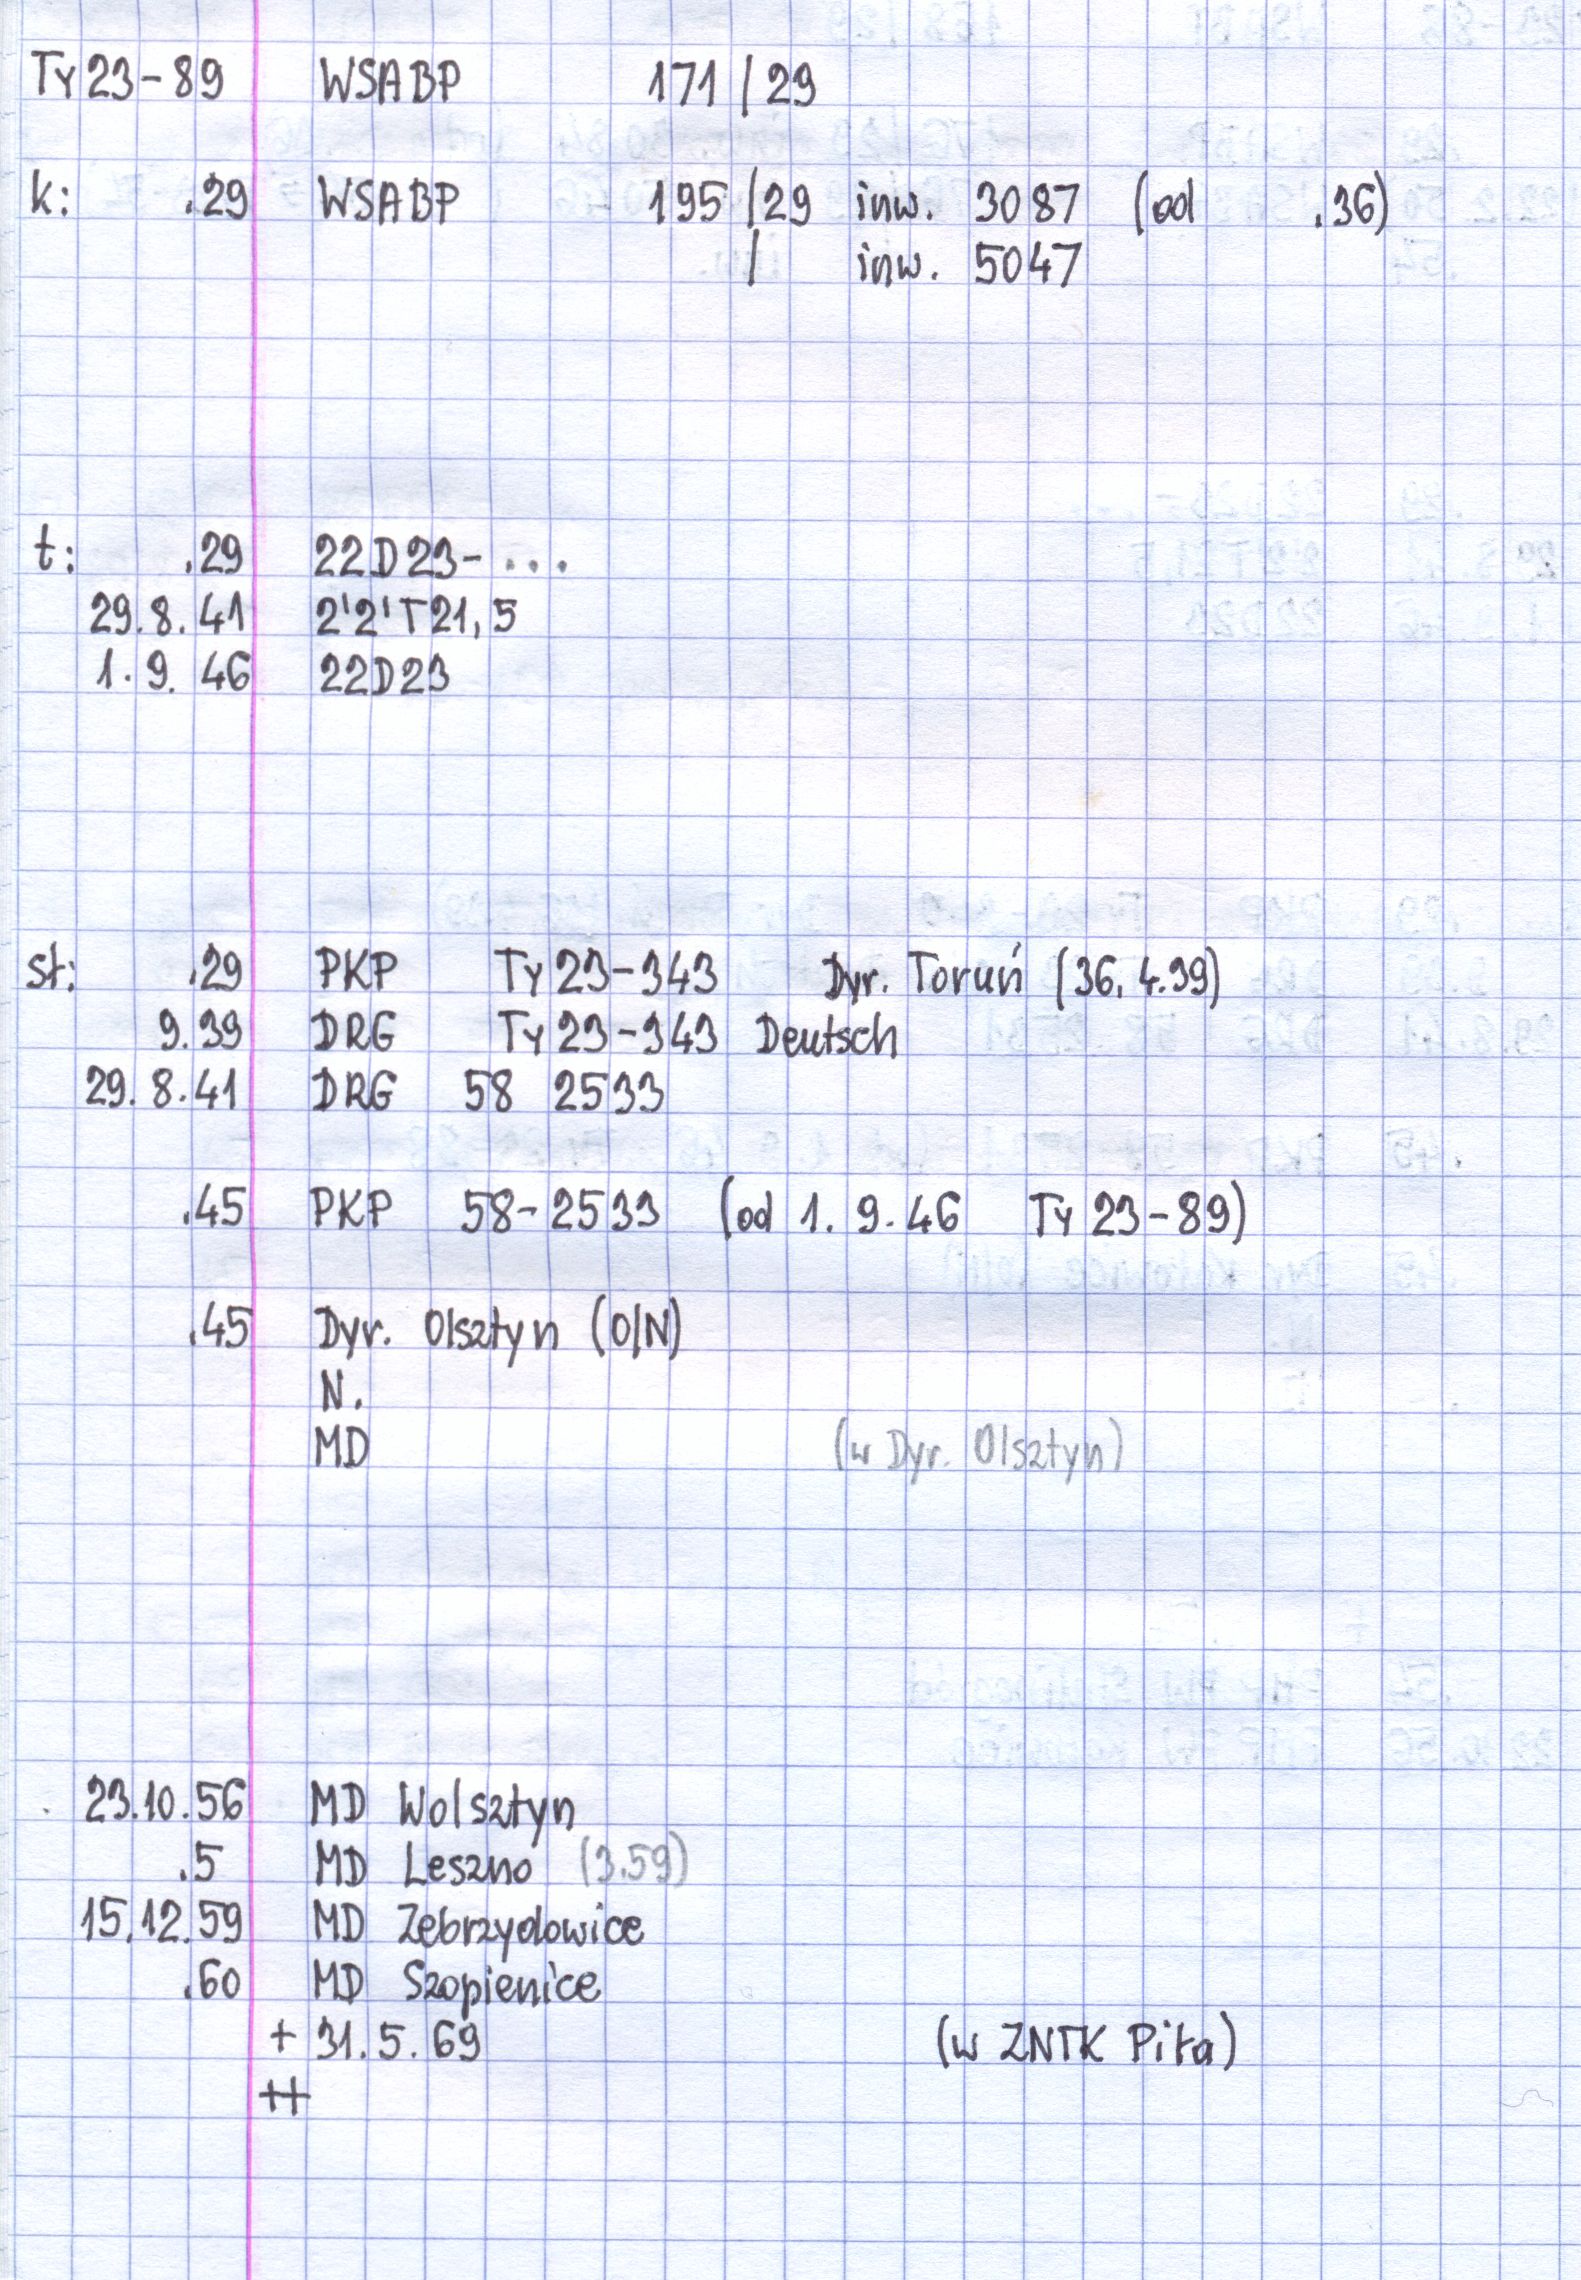 Ty23-89 WSABP 171/29
k: .29 WSABP 195/29 inw. 3087 (od .36)
/ inw. 5047
t: .29 22D23-...
29.8.41 2'2'T21,5
1.9.46 22D23
st: .29 PKP Ty23-343 Dyr. Toruń (36, 4.39)
9.39 DRG Ty23-343 Deutsch
29.8.41 DRG 58 2533
.45 PKP 58-2533 (od 1.9.46 Ty23-89)
.45 Dyr. Olsztyn (O/N)
N.
MD (w Dyr. Olsztyn)
23.10.56 MD Wolsztyn
.5 MD Leszno (3.59)
15.12.59 MD Zebrzydowice
.60 MD Szopienice
+ 31.5.69 (w ZNTK Piła)
++